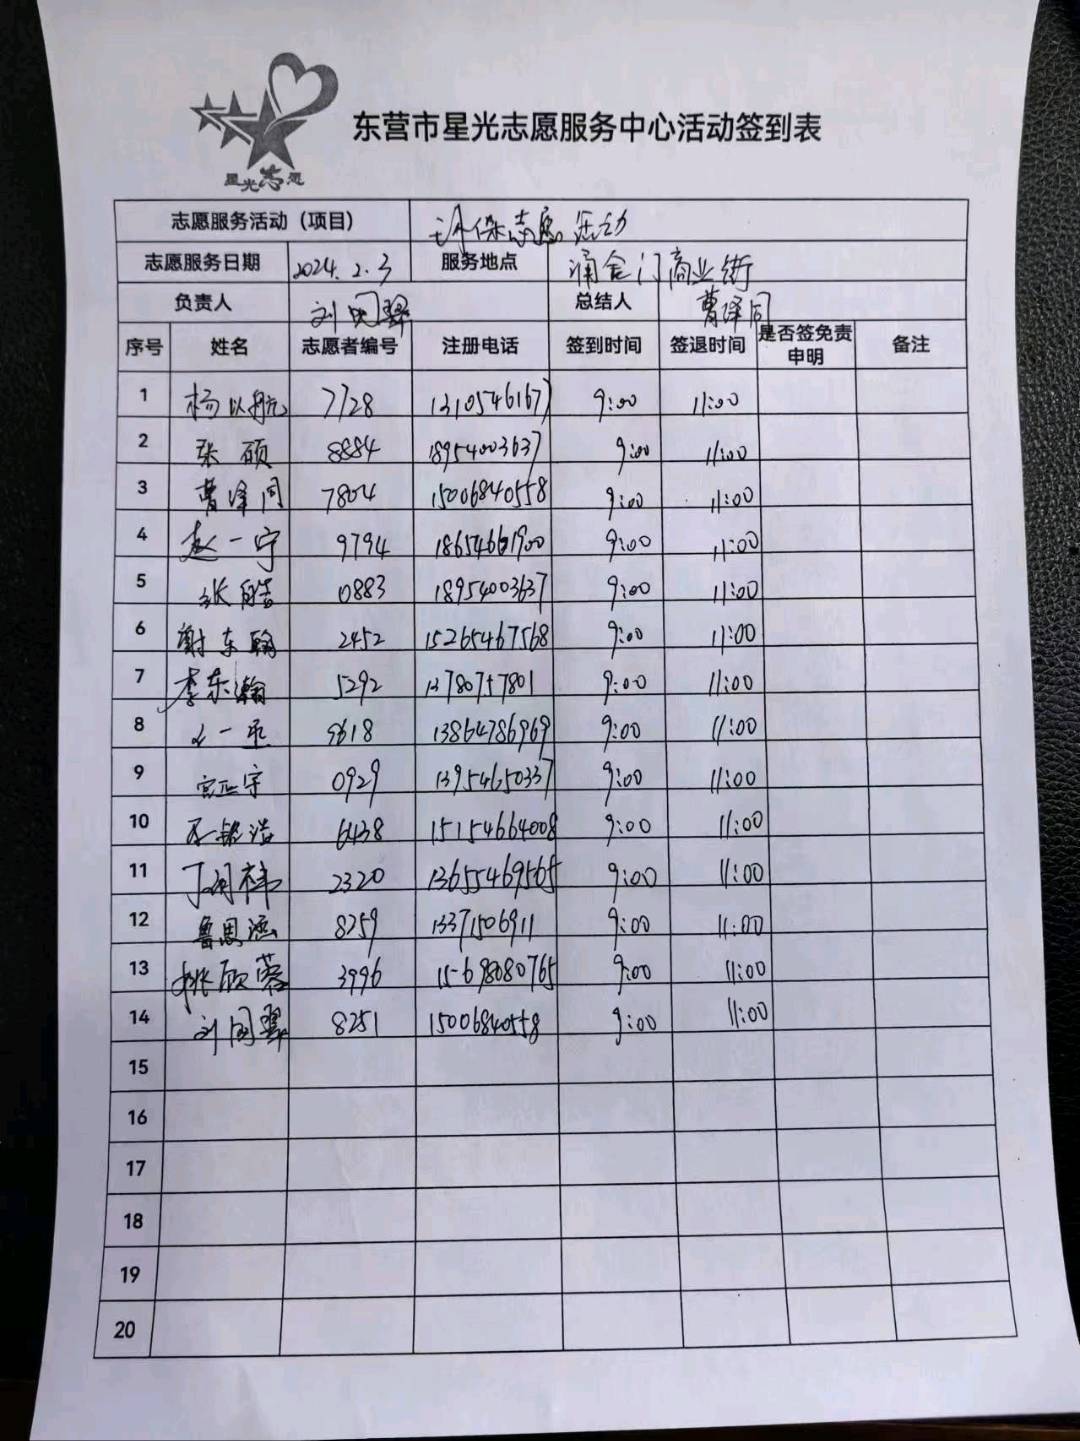 星光志愿
东营市星光志愿服务中心活动签到表
志愿服务活动（项目） 环保志愿活动
志愿服务日期 2024.2.3 服务地点 涌金门商业街
负责人 刘同翠 总结人 曹泽同
序号 姓名 志愿者编号 注册电话 签到时间 签退时间 是否签免责申明 备注
1 杨以航 7728 13105461677 9:00 11:00
2 张硕 8884 18954003637 9:00 11:00
3 曹泽同 7804 15006840558 9:00 11:00
4 赵一宁 9794 18654661900 9:00 11:00
5 张皓 0883 18954003637 9:00 11:00
6 谢东翰 2452 15265467568 9:00 11:00
7 李东瀚 5292 13780757801 9:00 11:00
8 一 9618 13864786969 9:00 11:00
9 宫正宇 0929 13954650337 9:00 11:00
10 6438 15154664008 9:00 11:00
11 2320 13655469565 9:00 11:00
12 鲁思涵 8259 13371506911 9:00 11:00
13 姚欣蓉 3996 15698080765 9:00 11:00
14 刘同翠 8251 15006840558 9:00 11:00
15
16
17
18
19
20